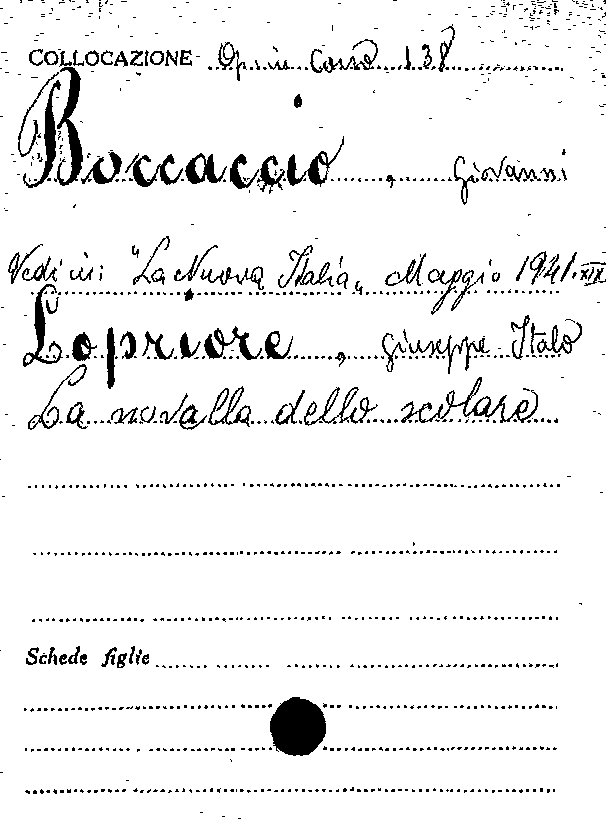 COLLOCAZIONE Op. in corso 138
Boccaccio, Giovanni
Vedi in: "La Nuova Italia„ Maggio 1941.XIX
Lopriore, Giuseppe Italo
La novella dello scolare
Schede figlie